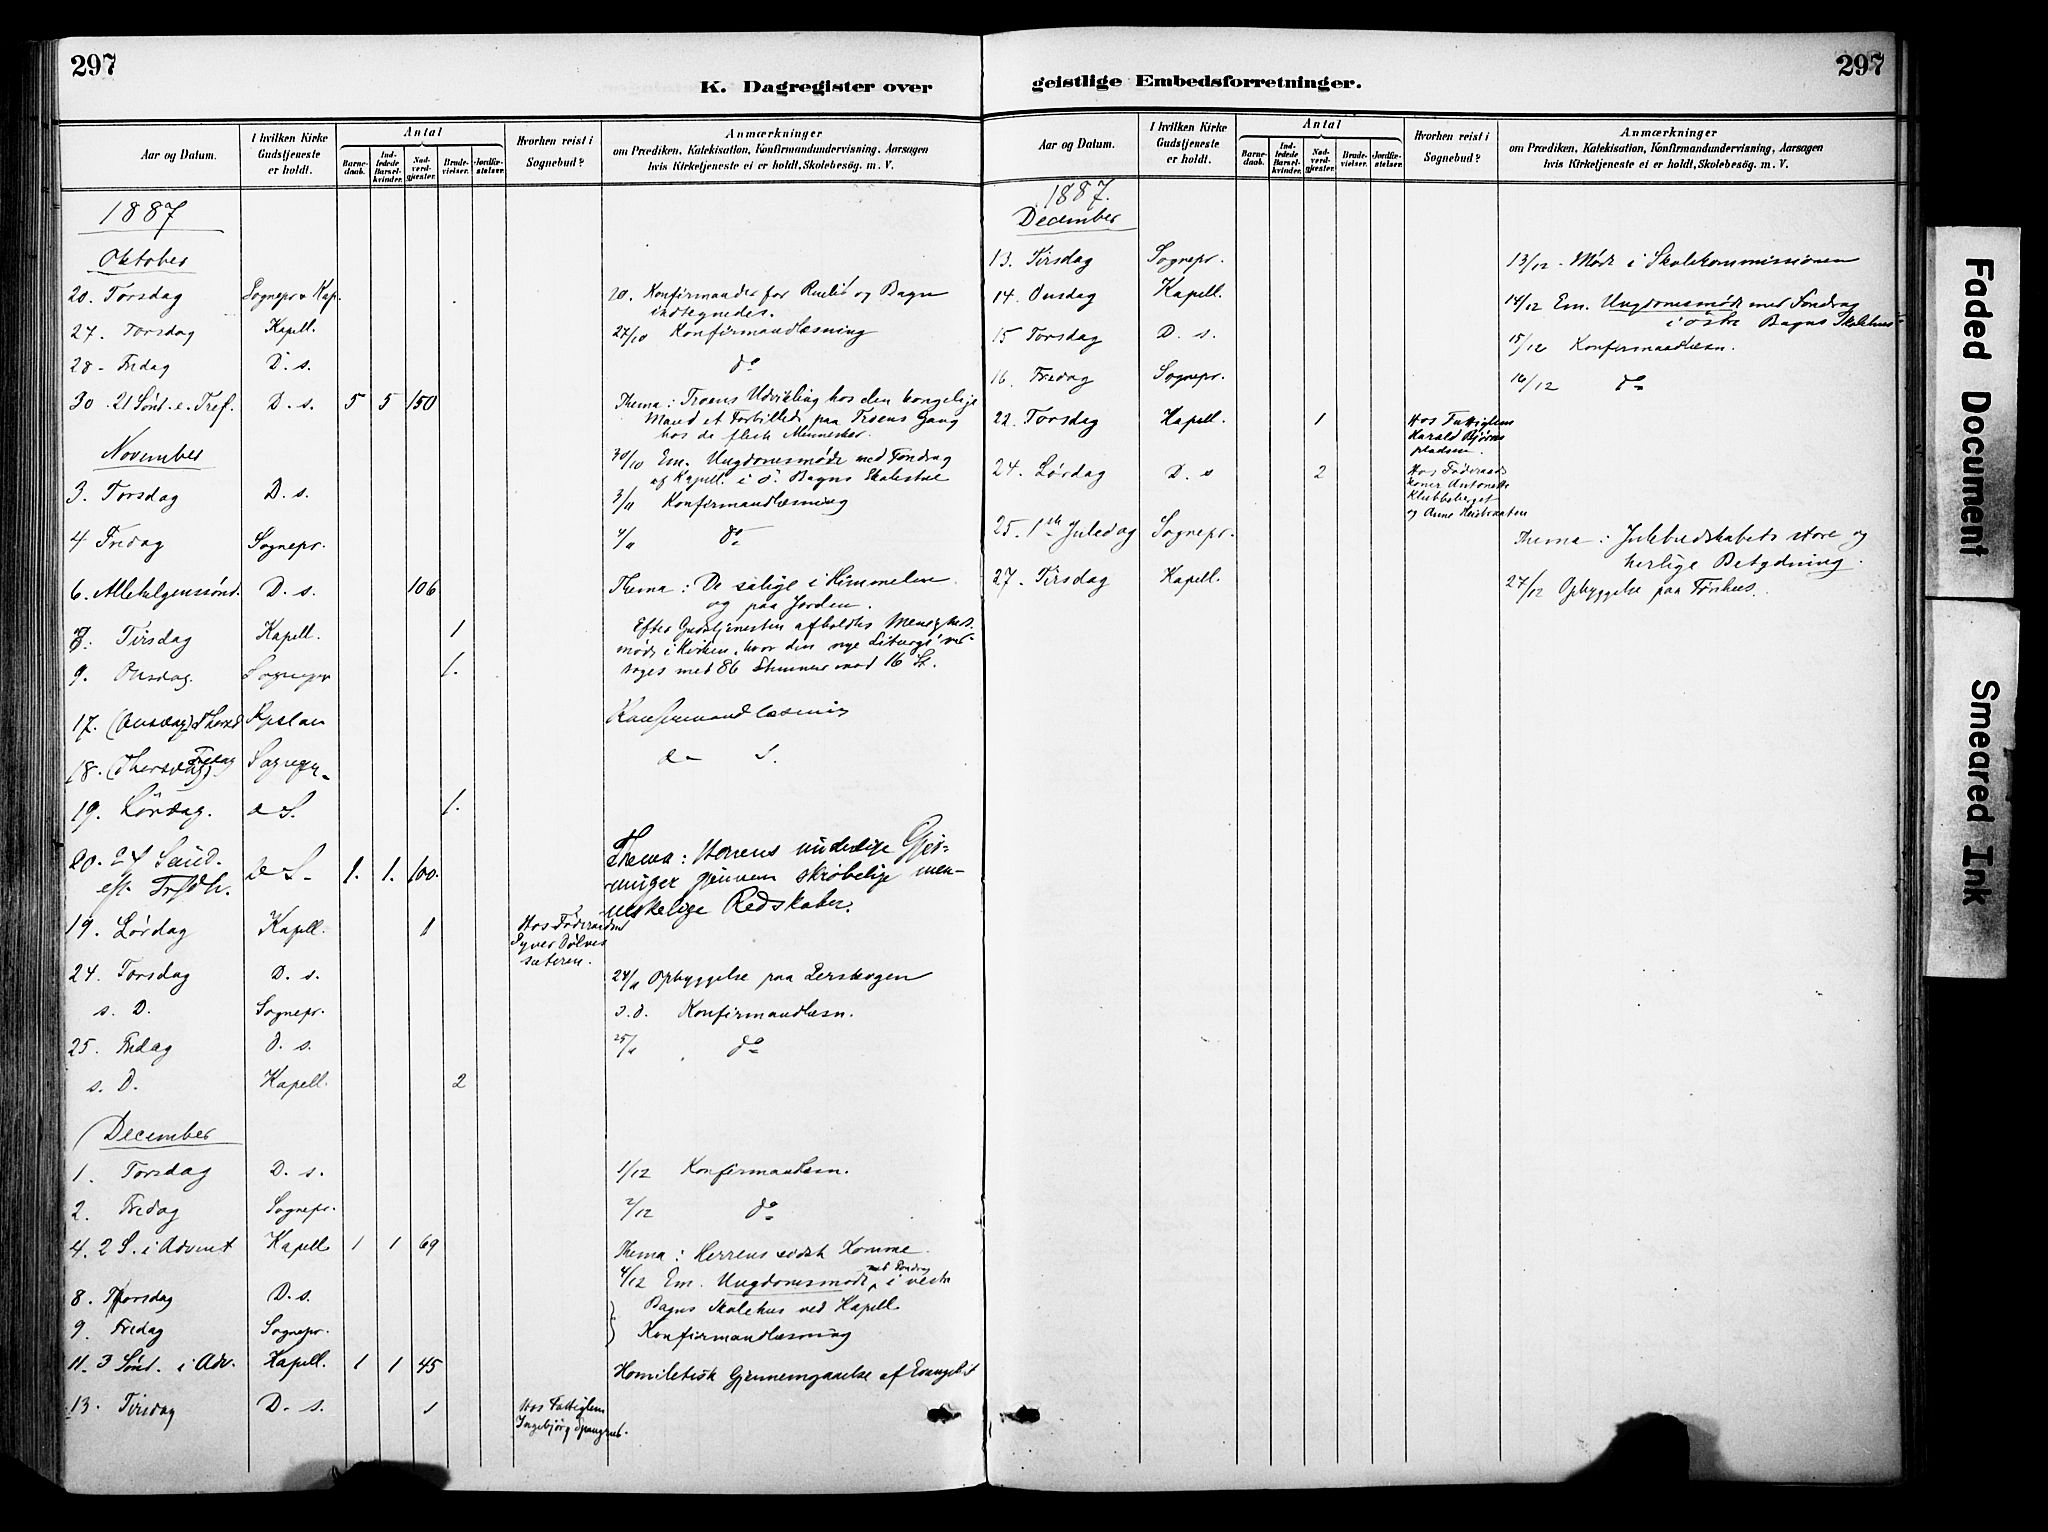 297
K. Dagregister over
Aar og Datum.
I hvilken Kirke Gudstjeneste er holdt.
Antal
Barnedaab.
Indledede Barselkvinder.
Nadverdgjester.
Brudevielser.
Jordfæstelser.
Hvorhen reist i Sognebud?
Anmærkninger
om Prædiken, Katekisation, Konfirmandundervisning, Aarsagen
hvis Kirketjeneste ei er holdt, Skolebesög. m. V.
1887
Oktober
20. Torsdag Sognepr & Kap. 20. Konfirmander for Reinli og Bagn
indtegnedes.
27. Torsdag Kapell. 27/10 Konfirmandlæsning
28- Fredag D. s. do
30. 21 Sönd. e. Tref. D. s. 5 5 150 Thema: Troens Udvikling hos den kongelige
Mand et Forbillede paa Troens Gang
hos de fleste Mennesker.
November
30/10 Em. Ungdomsmöde med Foredrag
af Kapell. i ö. Bagns Skolestue
3. Torsdag D. s. 3/11 Konfirmandlæsning
4 Fredag Sognepr. 4/11 do
6. Allehelgenssönd. D. s. 106 Thema: De salige i Himmelen
og paa Jorden.
8. Tirsdag Kapell. 1 Efter Gudstjenesten afholdtes Menighedsmöde
i Kirken, hvor den nye Liturgi
med 86 Stemmer mod 16 St.
9. Onsdag. Sognepr 1.
17. (Onsdag) Thorsd Kapelan Konfirmandlæsning
18. (Thorsdag) Fredag Sognepr. d- S.
19. Lördag. d S. 1.
20. 24 Sönd. eft. Trfdh. d S. 1. 1. 100. Thema: Herrens underlige Gjerninger
gjennem skröbelige menneskelige
Redskaber.
19. Lördag Kapell. 1 Hos Föderaadsm
Syver Dölvesæteren.
24. Torsdag D. s. 24/11 Opbyggelse paa Lershagen
s. D. Sognepr. s. d. Konfirmandlæsn.
25. Fredag D. s. 25/11 do
s. D. Kapell. 2
December
1. Torsdag D. s. 1/12 Konfirmandlæsn.
2. Fredag Sognepr. 2/12 do
4. 2 S. i Advent Kapell 1 1 69 Thema: Herrens sidste Komme.
4/12 Em. Ungdomsmöde med Foredrag i vestre
8. Torsdag D. s. Bagns Skolehus ved Kapell.
9. Fredag Sognepr. Konfirmandlæsning
11. 3 Sönd. i Adv. Kapell. 1 1 45 Homiletisk Gjennemgaaelse af Evangeliet
13. Tirsdag D. s. 1 Hos Fattiglem
Ingebjörg Spangrud.
297
geistlige Embedsforretninger.
Aar og Datum.
I hvilken Kirke Gudstjeneste er holdt.
Antal
Barnedaab.
Indledede Barselkvinder.
Nadverdgjester.
Brudevielser.
Jordfæstelser.
Hvorhen reist i Sognebud?
Anmærkninger
om Prædiken, Katekisation, Konfirmandundervisning, Aarsagen
hvis Kirketjeneste ei er holdt, Skolebesög. m. V.
1887.
December
13. Tirsdag Sognepr. 13/12 - Möde i Skolekommissionen
14. Onsdag Kapell. 14/12 Em. Ungdomsmöde med Foredrag
i östre Bagns Skolehus
15 Torsdag D. s. 15/12 Konfirmandlæsn.
16. Fredag Sognepr. 16/12 do
22. Torsdag Kapell. 1 Hos Fattiglem
Harald Björnspladsen.
24. Lördag D. s 2 Hos Föderaadskoner
Antonette
Klubbsberget
og Anne
25. 1ste Juledag Sognepr. Thema: Julebudskabets store og
herlige Betydning.
27. Tirsdag Kapell. 27/12 Opbyggelse paa Tönhus.
Faded Document
Smeared Ink